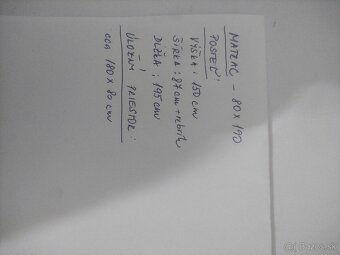 MATRAC - 80 x 190
POSTEĽ:
VÝŠKA: 150 cm
ŠÍRKA: 87 cm + rebrík
DĹŽKA: 195 cm
ÚLOŽNÝ PRIESTOR:
cca 180 x 80 cm
bazoš.sk